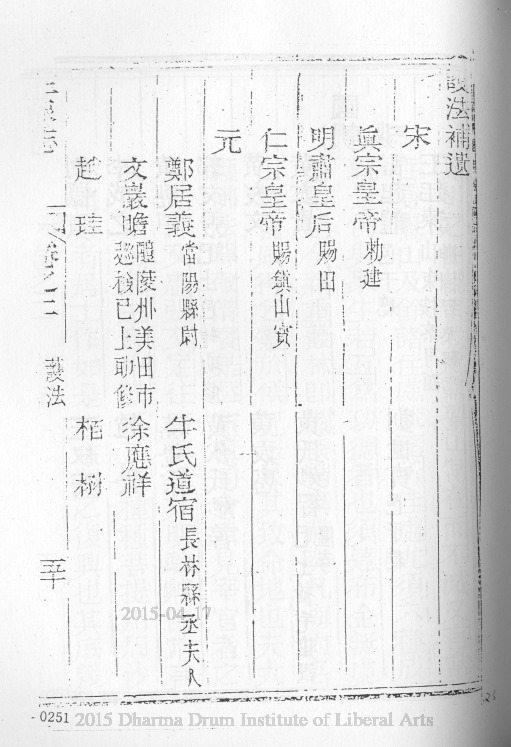 護法補遺
宋
真宗皇帝 勅建
明肅皇后 賜田
仁宗皇帝 賜鎮山寶
元
鄭居義 當陽縣尉 牛氏道宿 長林縣丞夫人
文裳瞻 醴陵州美田市巡檢已上助修 涂應祥
趙珪 栢樹
卷之二 護法 五十
2015-04-17
0251
2015 Dharma Drum Institute of Liberal Arts